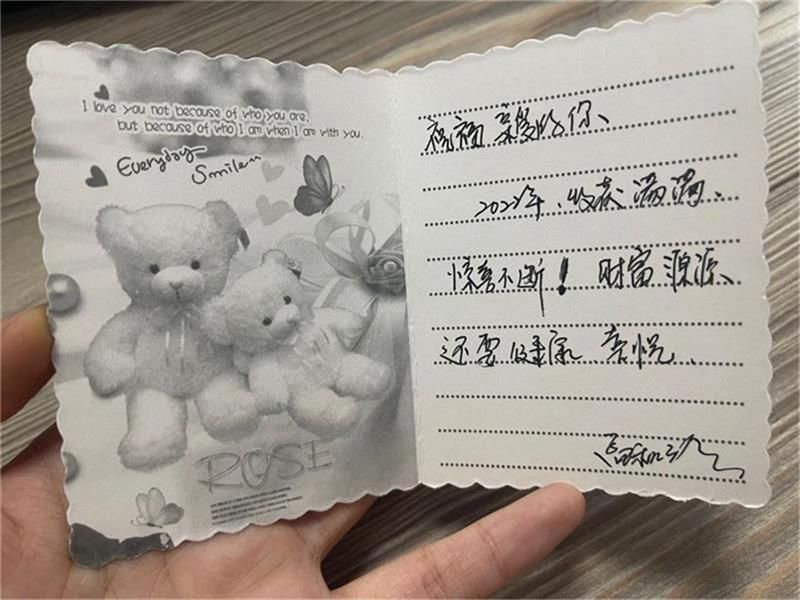 I love you not because of who you are,
but because of who I am when I am with you.
Everyday
Smile
ROSE
祝福 亲爱的你、
2022年、收获满满、
惊喜不断！财富源源、
还要健康 喜悦、